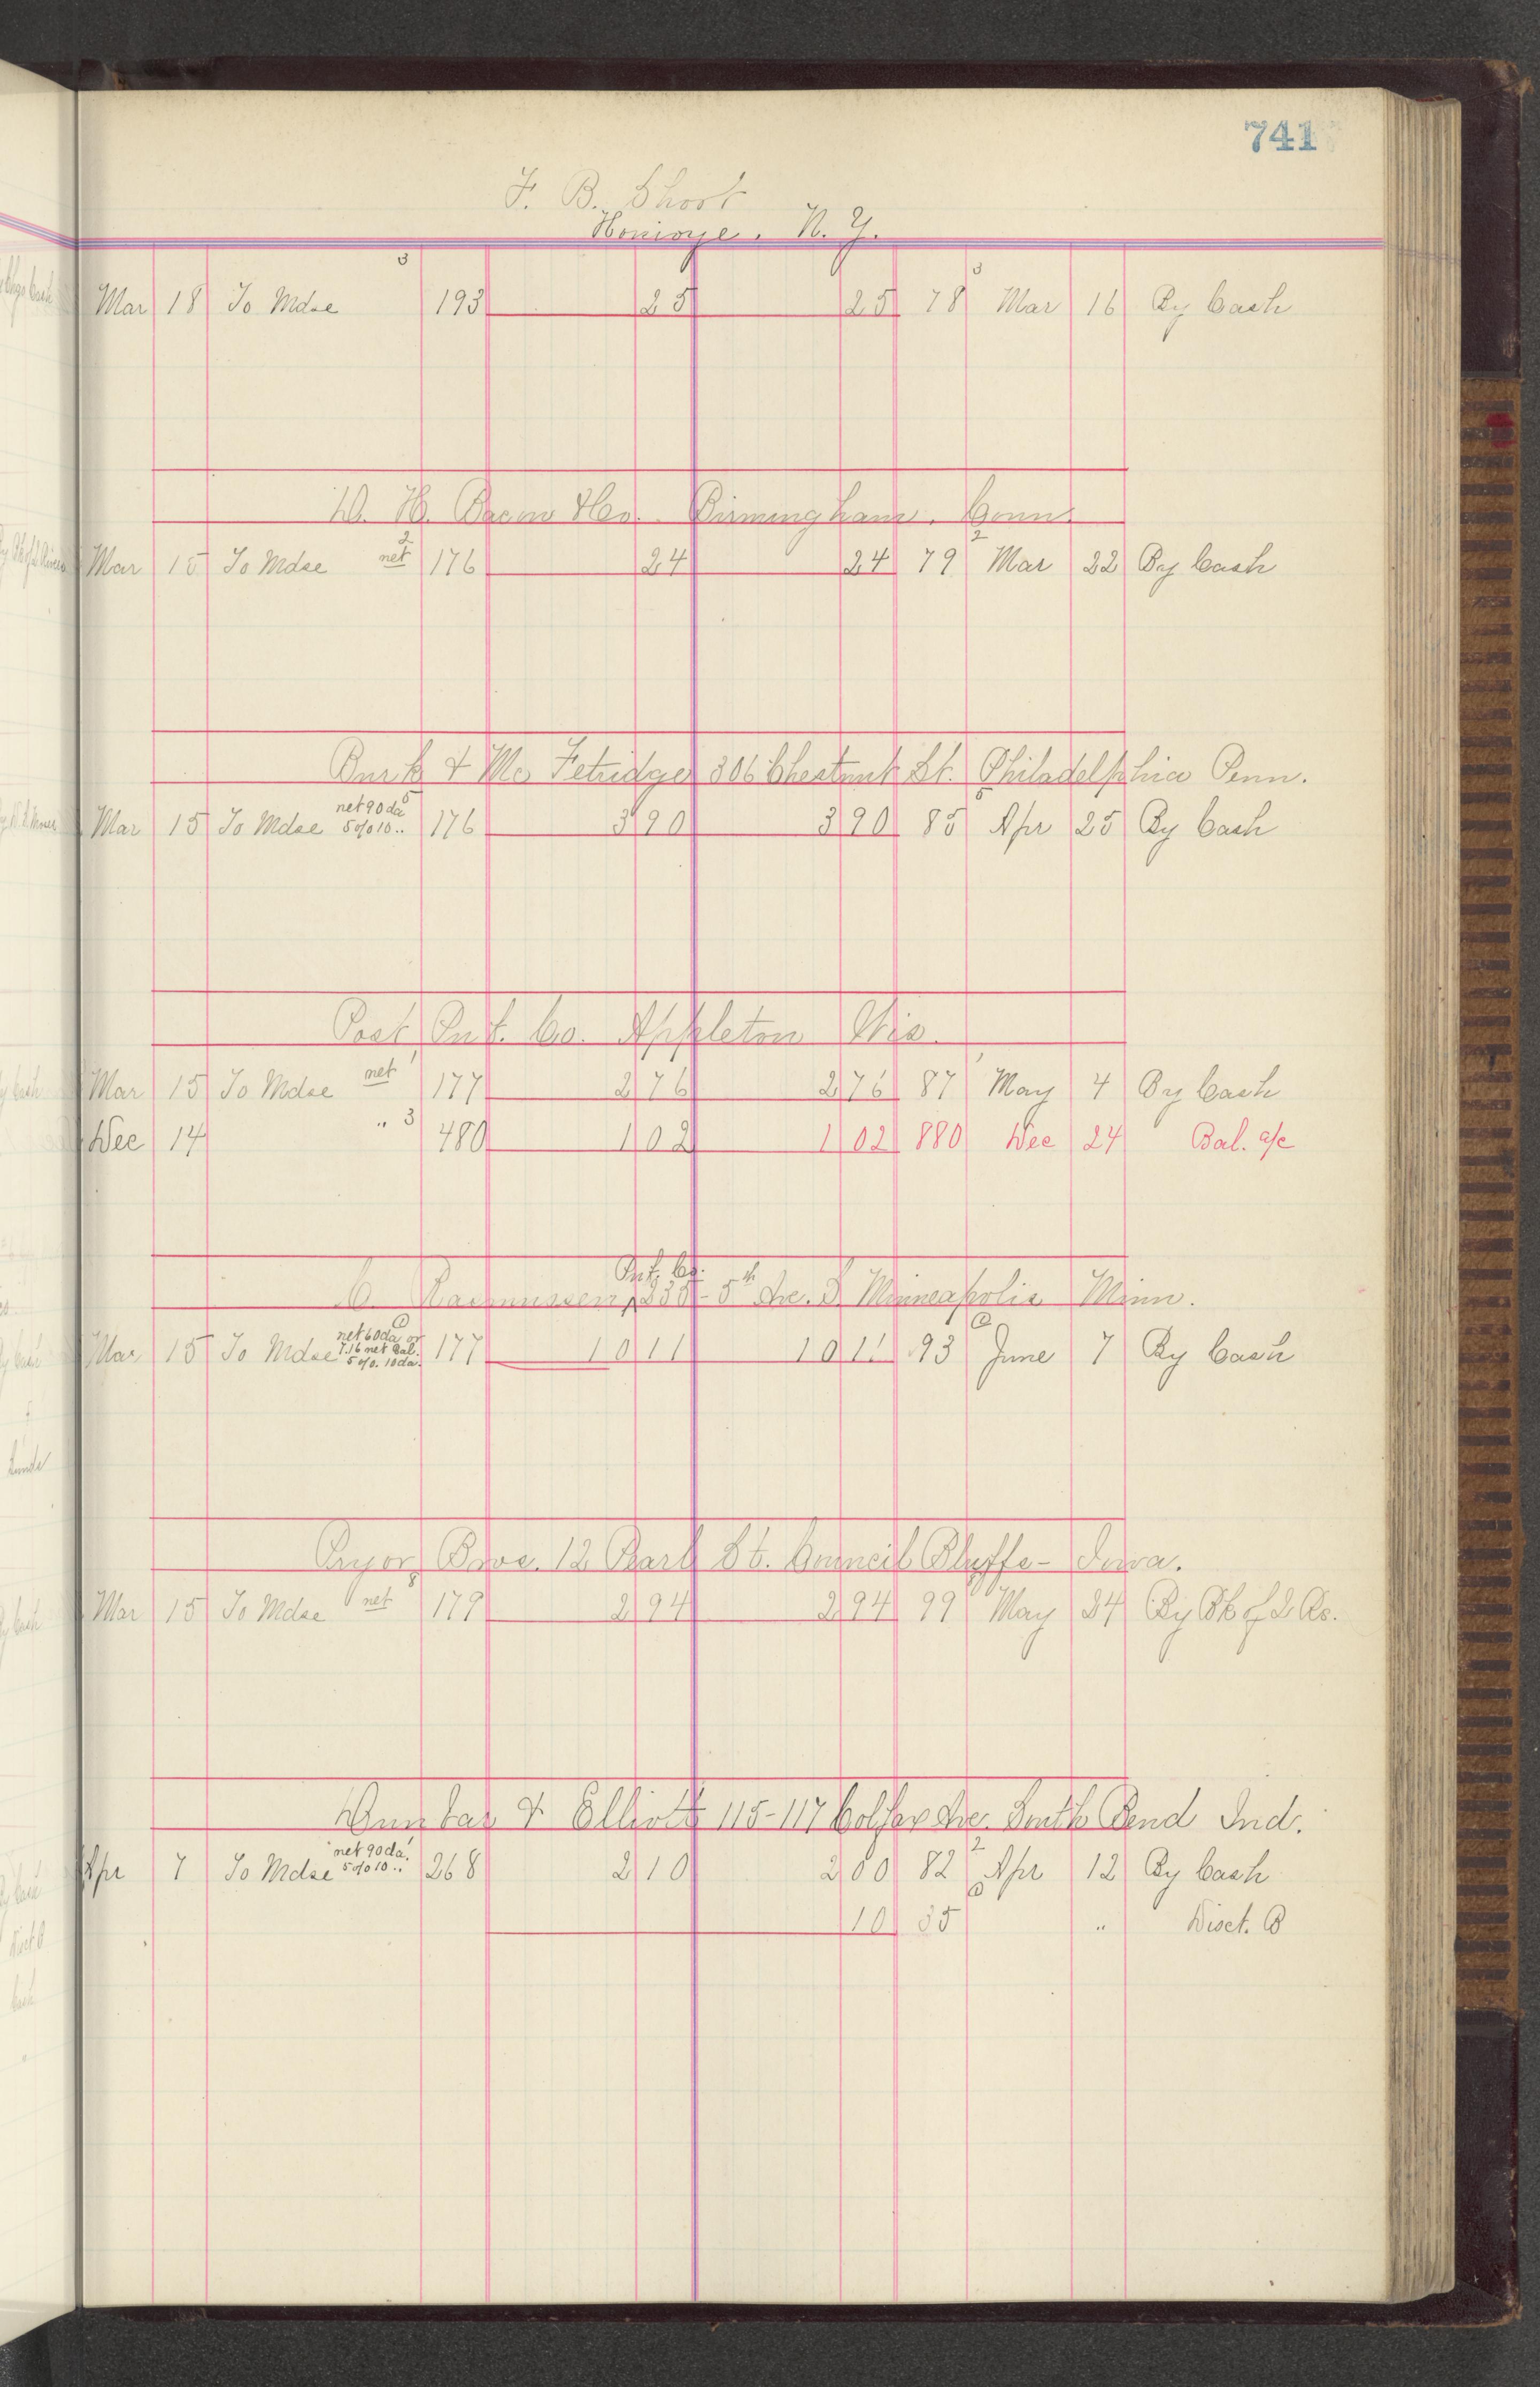 741
F. B. Short
Honioye. N. Y.
Mar 18 To Mdse 3 193 25 25 78 3 Mar 16 By Cash
D. H. Bacon & Co. Birmingham. Conn.
Mar 15 To Mdse net 2 176 24 24 79 2 Mar 22 By Cash
Burk & Mc Fetridge 306 Chestnut St. Philadelphia Penn.
Mar 15 To Mdse net 90 da 5 176 3 90 3 90 85 5 Apr 25 By Cash
5 % 10 ..
Post Pub. Co. Appleton Wis.
Mar 15 To Mdse net 1 177 2 76 2 76 87 1 May 4 By Cash
Dec 14 " 3 480 1 02 1 02 880 Dec 24 Bal. a/c
Ptg. Co.
C. Rasmussen 235 - 5th Ave. S. Minneapolis Minn.
Mar 15 To Mdse net 60 da or 177 10 11 10 11 93 June 7 By Cash
7.16 net Bal.
5 %. 10 da.
Pryor Bros. 12 Pearl St. Council Bluffs - Iowa.
Mar 15 To Mdse net 8 179 2 94 2 94 99 May 24 By Bk of
Dunbar & Elliott 115-117 Colfax Ave. South Bend Ind.
Apr 7 To Mdse net 90 da 268 2 10 2 00 82 2 Apr 12 By Cash
5 % 10 ..
10 35 " Disct. B